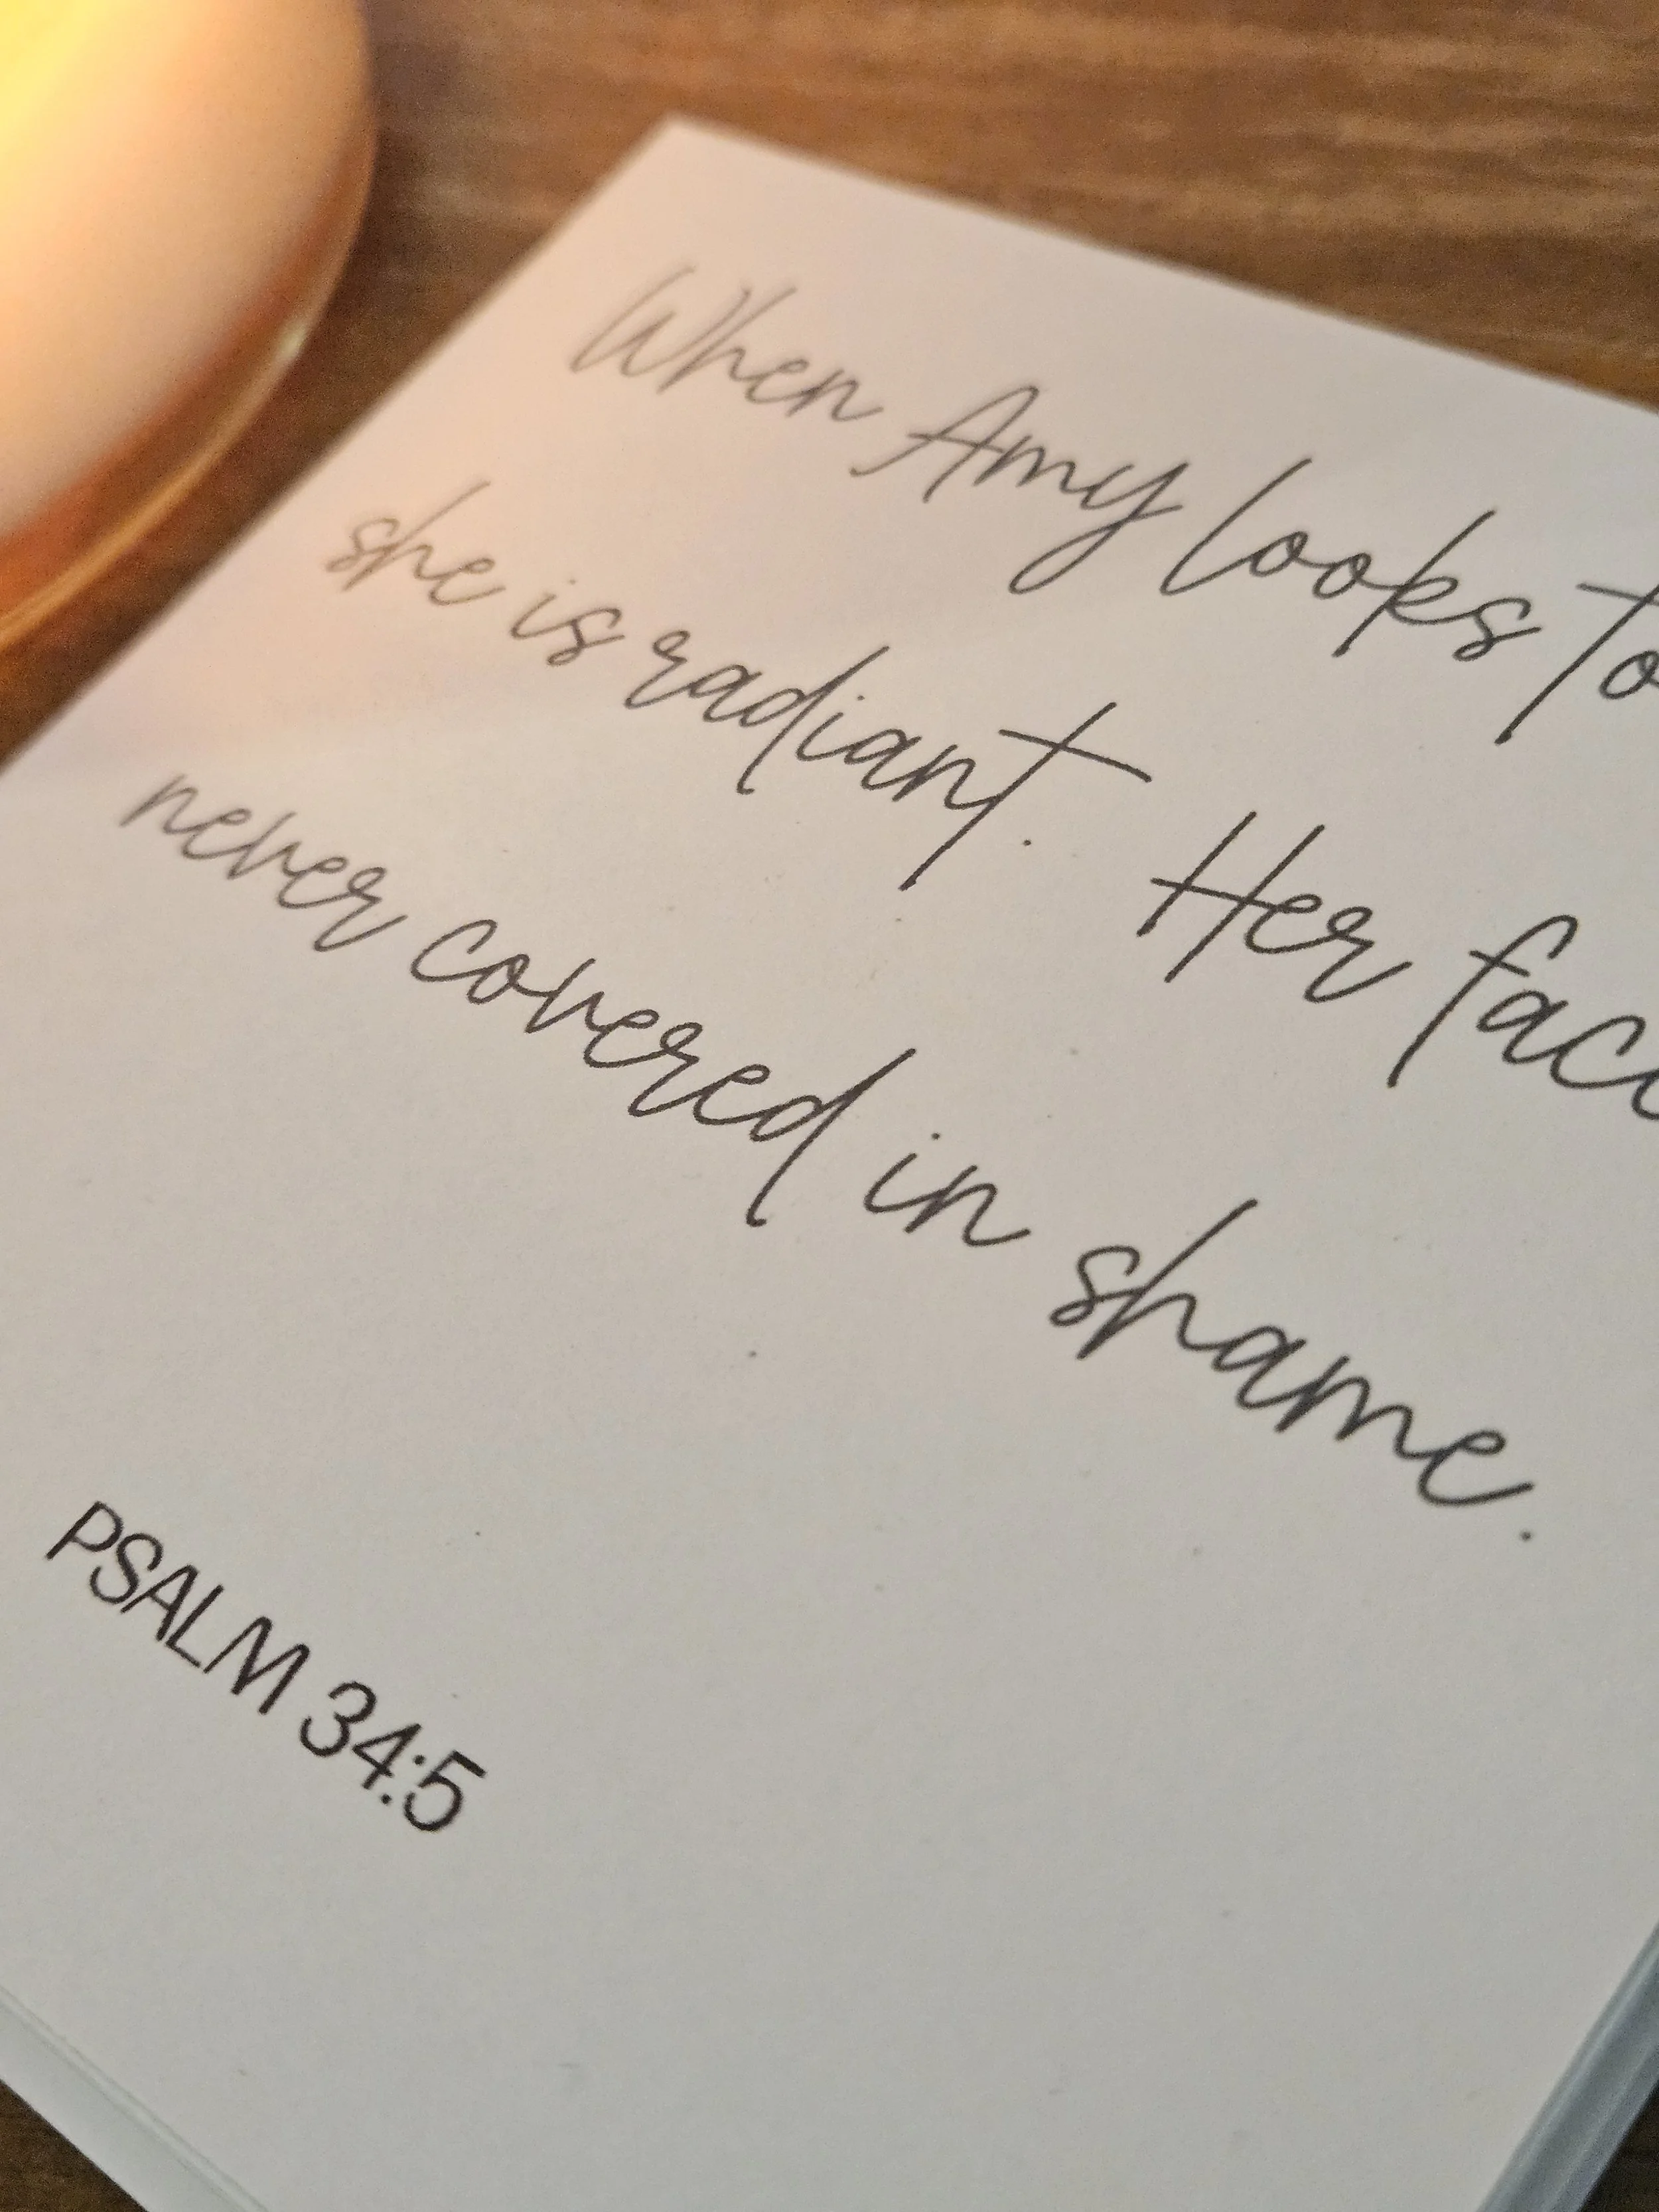 When Amy looks to
she is radiant. Her fac
never covered in shame.
PSALM 34:5